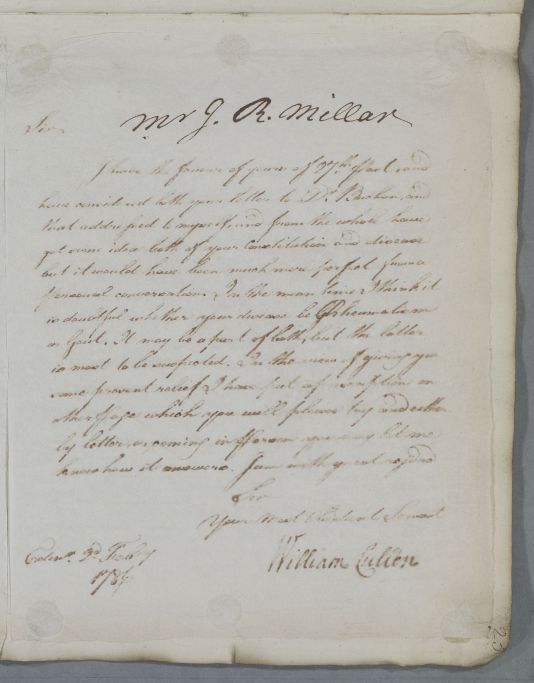 Mr J. R. Millar
Sir
I have the favour of yours of 27th and
have considered both your letter to Dr. and
that addressed to myself and from the whole have
got some idea both of your Constitution and disease
but it would have been much more perfect from a
personal conversation. In the mean time I think it
is doubtful whether your disease be Rheumatism
or Gout. It may be a part of both, but the latter
is most to be suspected. In the view of giving you
some present relief I have put a prescription on
other page which you will please try and either
by letter, or coming in you may let me
know how it answers. I am with great regard
Sir
Your Most Obedient Servant
Edinr. 3d Feby
William Cullen